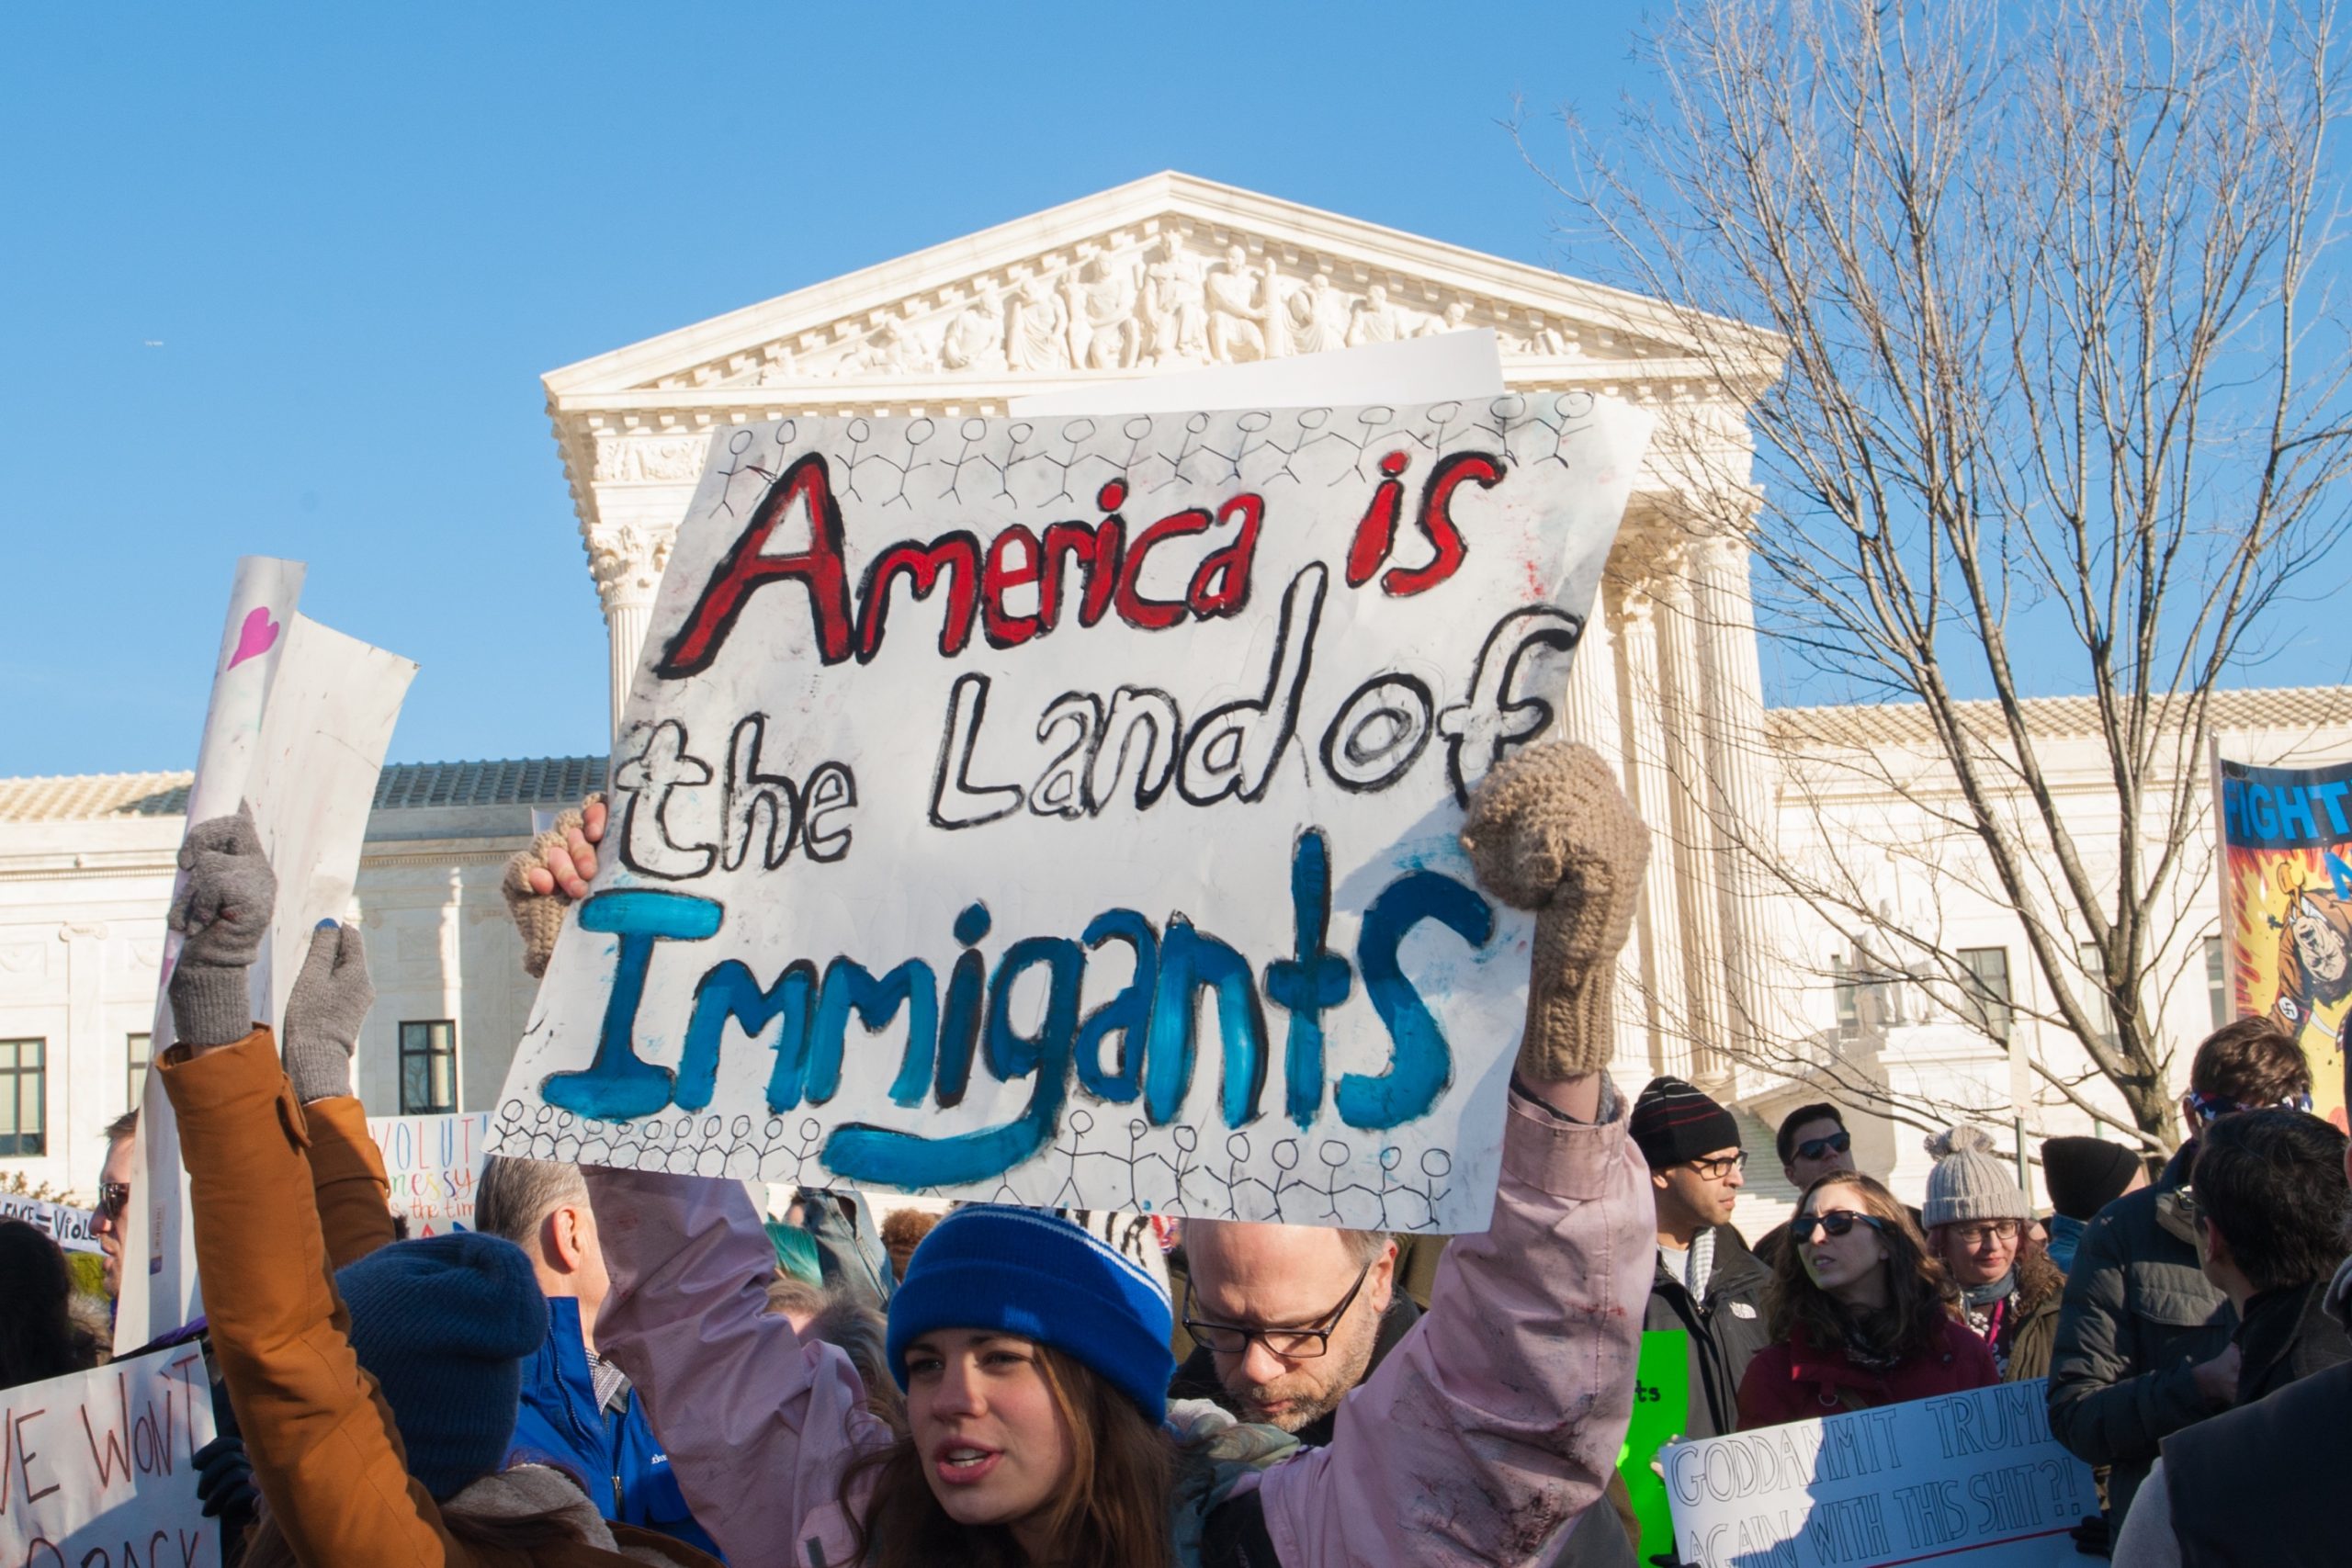 America is
the Land of
Immigants
FIGHT
VOLUT
messy
s the tim
= VIOL
WE WON'T
BACK
ts
GODDAMMIT TRUMP
AGAIN WITH THIS SHIT?!